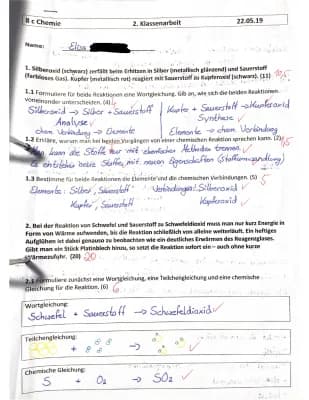 8 c Chemie 2. Klassenarbeit 22.05.19
Name: Elsa
1. Silberoxid (schwarz) zerfällt beim Erhitzen in Silber (metallisch glänzend) und Sauerstoff
(farbloses Gas). Kupfer (metallisch rot) reagiert mit Sauerstoff zu Kupferoxid (schwarz). (11)
1.1 Formuliere für beide Reaktionen eine Wortgleichung. Gib an, wie sich die beiden Reaktionen
voneinander unterscheiden. (4)
Silberoxid → Silber + Sauerstoff
Analyse
chem. Verbindung → Elemente
Kupfer + Sauerstoff → Kupferoxid
Synthese
Elemente → chem. Verbindung
1.2 Erkläre, warum man bei beiden Vorgängen von einer chemischen Reaktion sprechen kann. (2)
Man kann die Stoffe nur mit chemischen Methoden trennen
Es entstehen neue Stoffe mit neuen Eigenschaften (Stoffumwandlung)
1.3 Bestimme für beide Reaktionen die Elemente und die chemischen Verbindungen. (5)
Elemente: Silber, Sauerstoff Verbindungen: Silberoxid
Kupfer, Sauerstoff Kupferoxid
2. Bei der Reaktion von Schwefel und Sauerstoff zu Schwefeldioxid muss man nur kurz Energie in
Form von Wärme aufwenden, bis die Reaktion schließlich von alleine weiterläuft. Ein heftiges
Aufglühen ist dabei genauso zu beobachten wie ein deutliches Erwärmen des Reagenzglases.
Gibt man ein Stück Platinblech hinzu, so setzt die Reaktion sofort ein – auch ohne kurze
Wärmezufuhr. (20) 20
2.1 Formuliere zunächst eine Wortgleichung, eine Teilchengleichung und eine chemische
Gleichung für die Reaktion. (6) 6
Wortgleichung:
Schwefel + Sauerstoff → Schwefeldioxid
Teilchengleichung:
+ →
Chemische Gleichung:
S + O₂ → SO₂